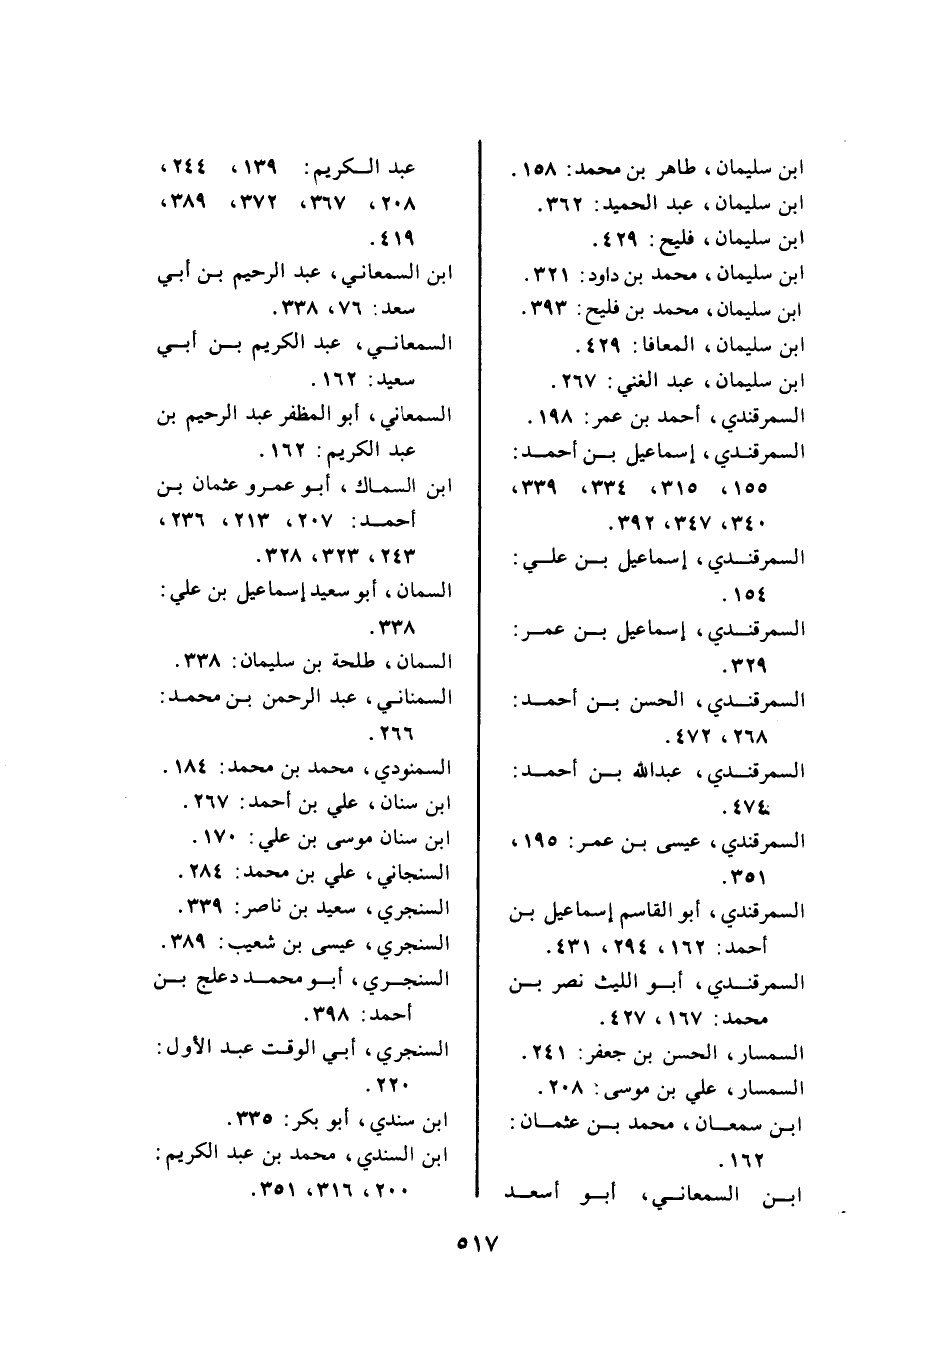 ابن سليمان، طاهر بن محمد: ١٥٨.
ابن سليمان، عبد الحميد: ٣٦٢.
ابن سليمان، فليح: ٤٢٩.
ابن سليمان، محمد بن داود: ٣٢١.
ابن سليمان، محمد بن فليح: ٣٩٣.
ابن سليمان، المعافا: ٤٢٩.
ابن سليمان، عبد الغني: ٢٦٧.
السمرقندي، أحمد بن عمر: ١٩٨.
السمرقندي، إسماعيل بن أحمد:
١٥٥، ٣١٥، ٣٣٤، ٣٣٩،
٣٤٠، ٣٤٧، ٣٩٢.
السمرقندي، إسماعيل بن علي:
١٥٤.
السمرقندي، إسماعيل بن عمر:
٣٢٩.
السمرقندي، الحسن بن أحمد:
٢٦٨، ٤٧٢.
السمرقندي، عبدالله بن أحمد:
٤٧٤.
السمرقندي، عيسى بن عمر: ١٩٥،
٣٥١.
السمرقندي، أبو القاسم إسماعيل بن
أحمد: ١٦٢، ٢٩٤، ٤٣١.
السمرقندي، أبو الليث نصر بن
محمد: ١٦٧، ٤٢٧.
السمسار، الحسن بن جعفر: ٢٤١.
السمسار، علي بن موسى: ٢٠٨.
ابن سمعان، محمد بن عثمان:
١٦٢.
ابن السمعاني، أبو أسعد
عبد الكريم: ١٣٩، ٢٤٤،
٢٠٨، ٣٦٧، ٣٧٢، ٣٨٩،
٤١٩.
ابن السمعاني، عبد الرحيم بن أبي
سعد: ٧٦، ٣٣٨.
السمعاني، عبد الكريم بن أبي
سعيد: ١٦٢.
السمعاني، أبو المظفر عبد الرحيم بن
عبد الكريم: ١٦٢.
ابن السماك، أبو عمرو عثمان بن
أحمد: ٢٠٧، ٢١٣، ٢٣٦،
٢٤٣، ٣٢٣، ٣٢٨.
السمان، أبو سعيد إسماعيل بن علي:
٣٣٨.
السمان، طلحة بن سليمان: ٣٣٨.
السمناني، عبد الرحمن بن محمد:
٢٦٦.
السمنودي، محمد بن محمد: ١٨٤.
ابن سنان، علي بن أحمد: ٢٦٧.
ابن سنان موسى بن علي: ١٧٠.
السنجاني، علي بن محمد: ٢٨٤.
السنجري، سعيد بن ناصر: ٣٣٩.
السنجري، عيسى بن شعيب: ٣٨٩.
السنجري، أبو محمد دعلج بن
أحمد: ٣٩٨.
السنجري، أبي الوقت عبد الأول:
٢٢٠.
ابن سندي، أبو بكر: ٣٣٥.
ابن السندي، محمد بن عبد الكريم:
٢٠٠، ٣١٦، ٣٥١.
٥١٧